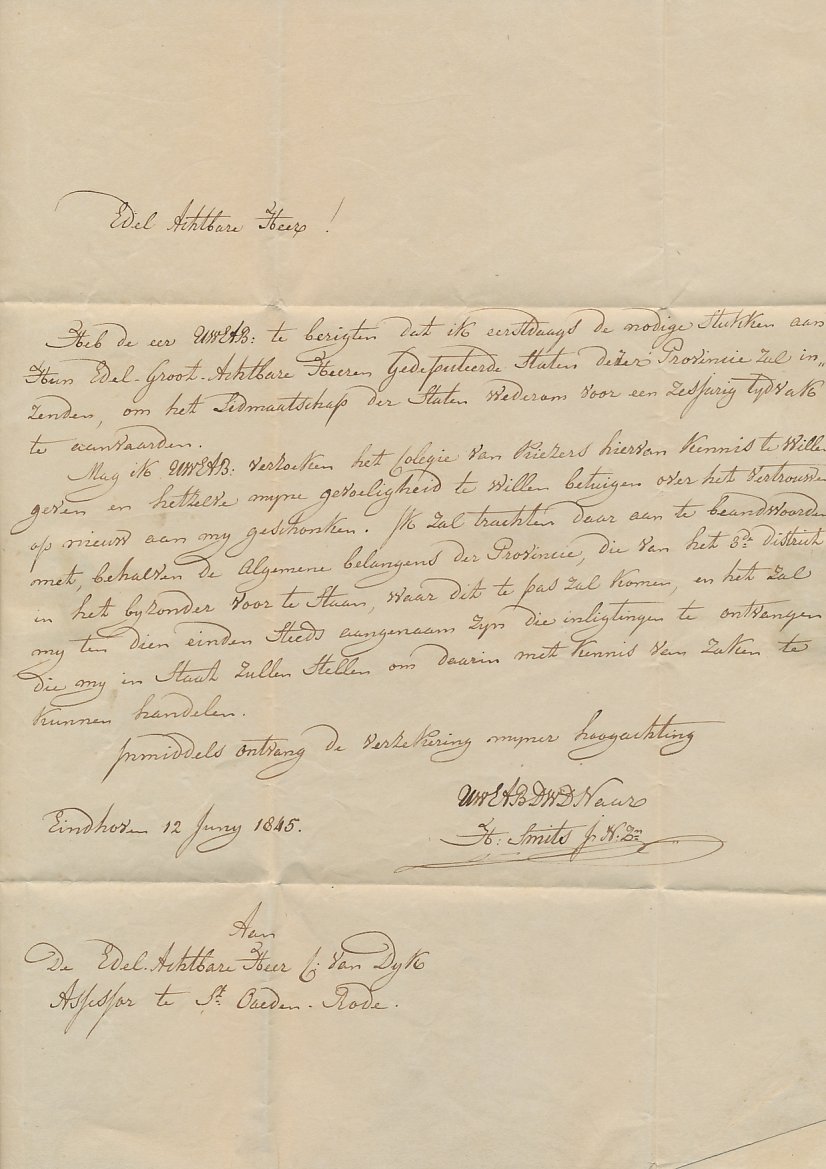 Edel Achtbare Heer!
Heb de eer UWEAB: te berigten dat ik eerstdaags de nodige Stukken aan
Hun Edel-Groot-Achtbare Heeren Gedeputeerde Staten dezer Provincie zal in„
zenden, om het Lidmaatschap der Staten wederom voor een zesjarig tydvak
te aanvaarden.
Mag ik UWEAB: verzoeken het Colegie van Kiezers hiervan kennis te wille
geven en hetzelve myne gevoeligheid te willen betuigen over het vertrouwen
op nieuw aan my geschonken. Ik zal trachten daar aan te beandwoorde
met, behalven de Algemene belangens der Provincie, die van het 3de district
in het byzonder voor te Staan, waar dit te pas zal komen, en het zal
my ten dien einden Steeds aangenaam zyn die inligtingen te ontvangen
die my in Staat zullen Stellen om daarin met kennis van zaken te
kunnen handelen.
Inmiddels ontvang de verzekering myner hoogachting
UWEABDWDNaar
H: Smits J N: Zn
Eindhoven 12 Juny 1845.
Aan
De Edel-Achtbare Heer C: van Dyk
Assessor te St. Oeden-Rode.